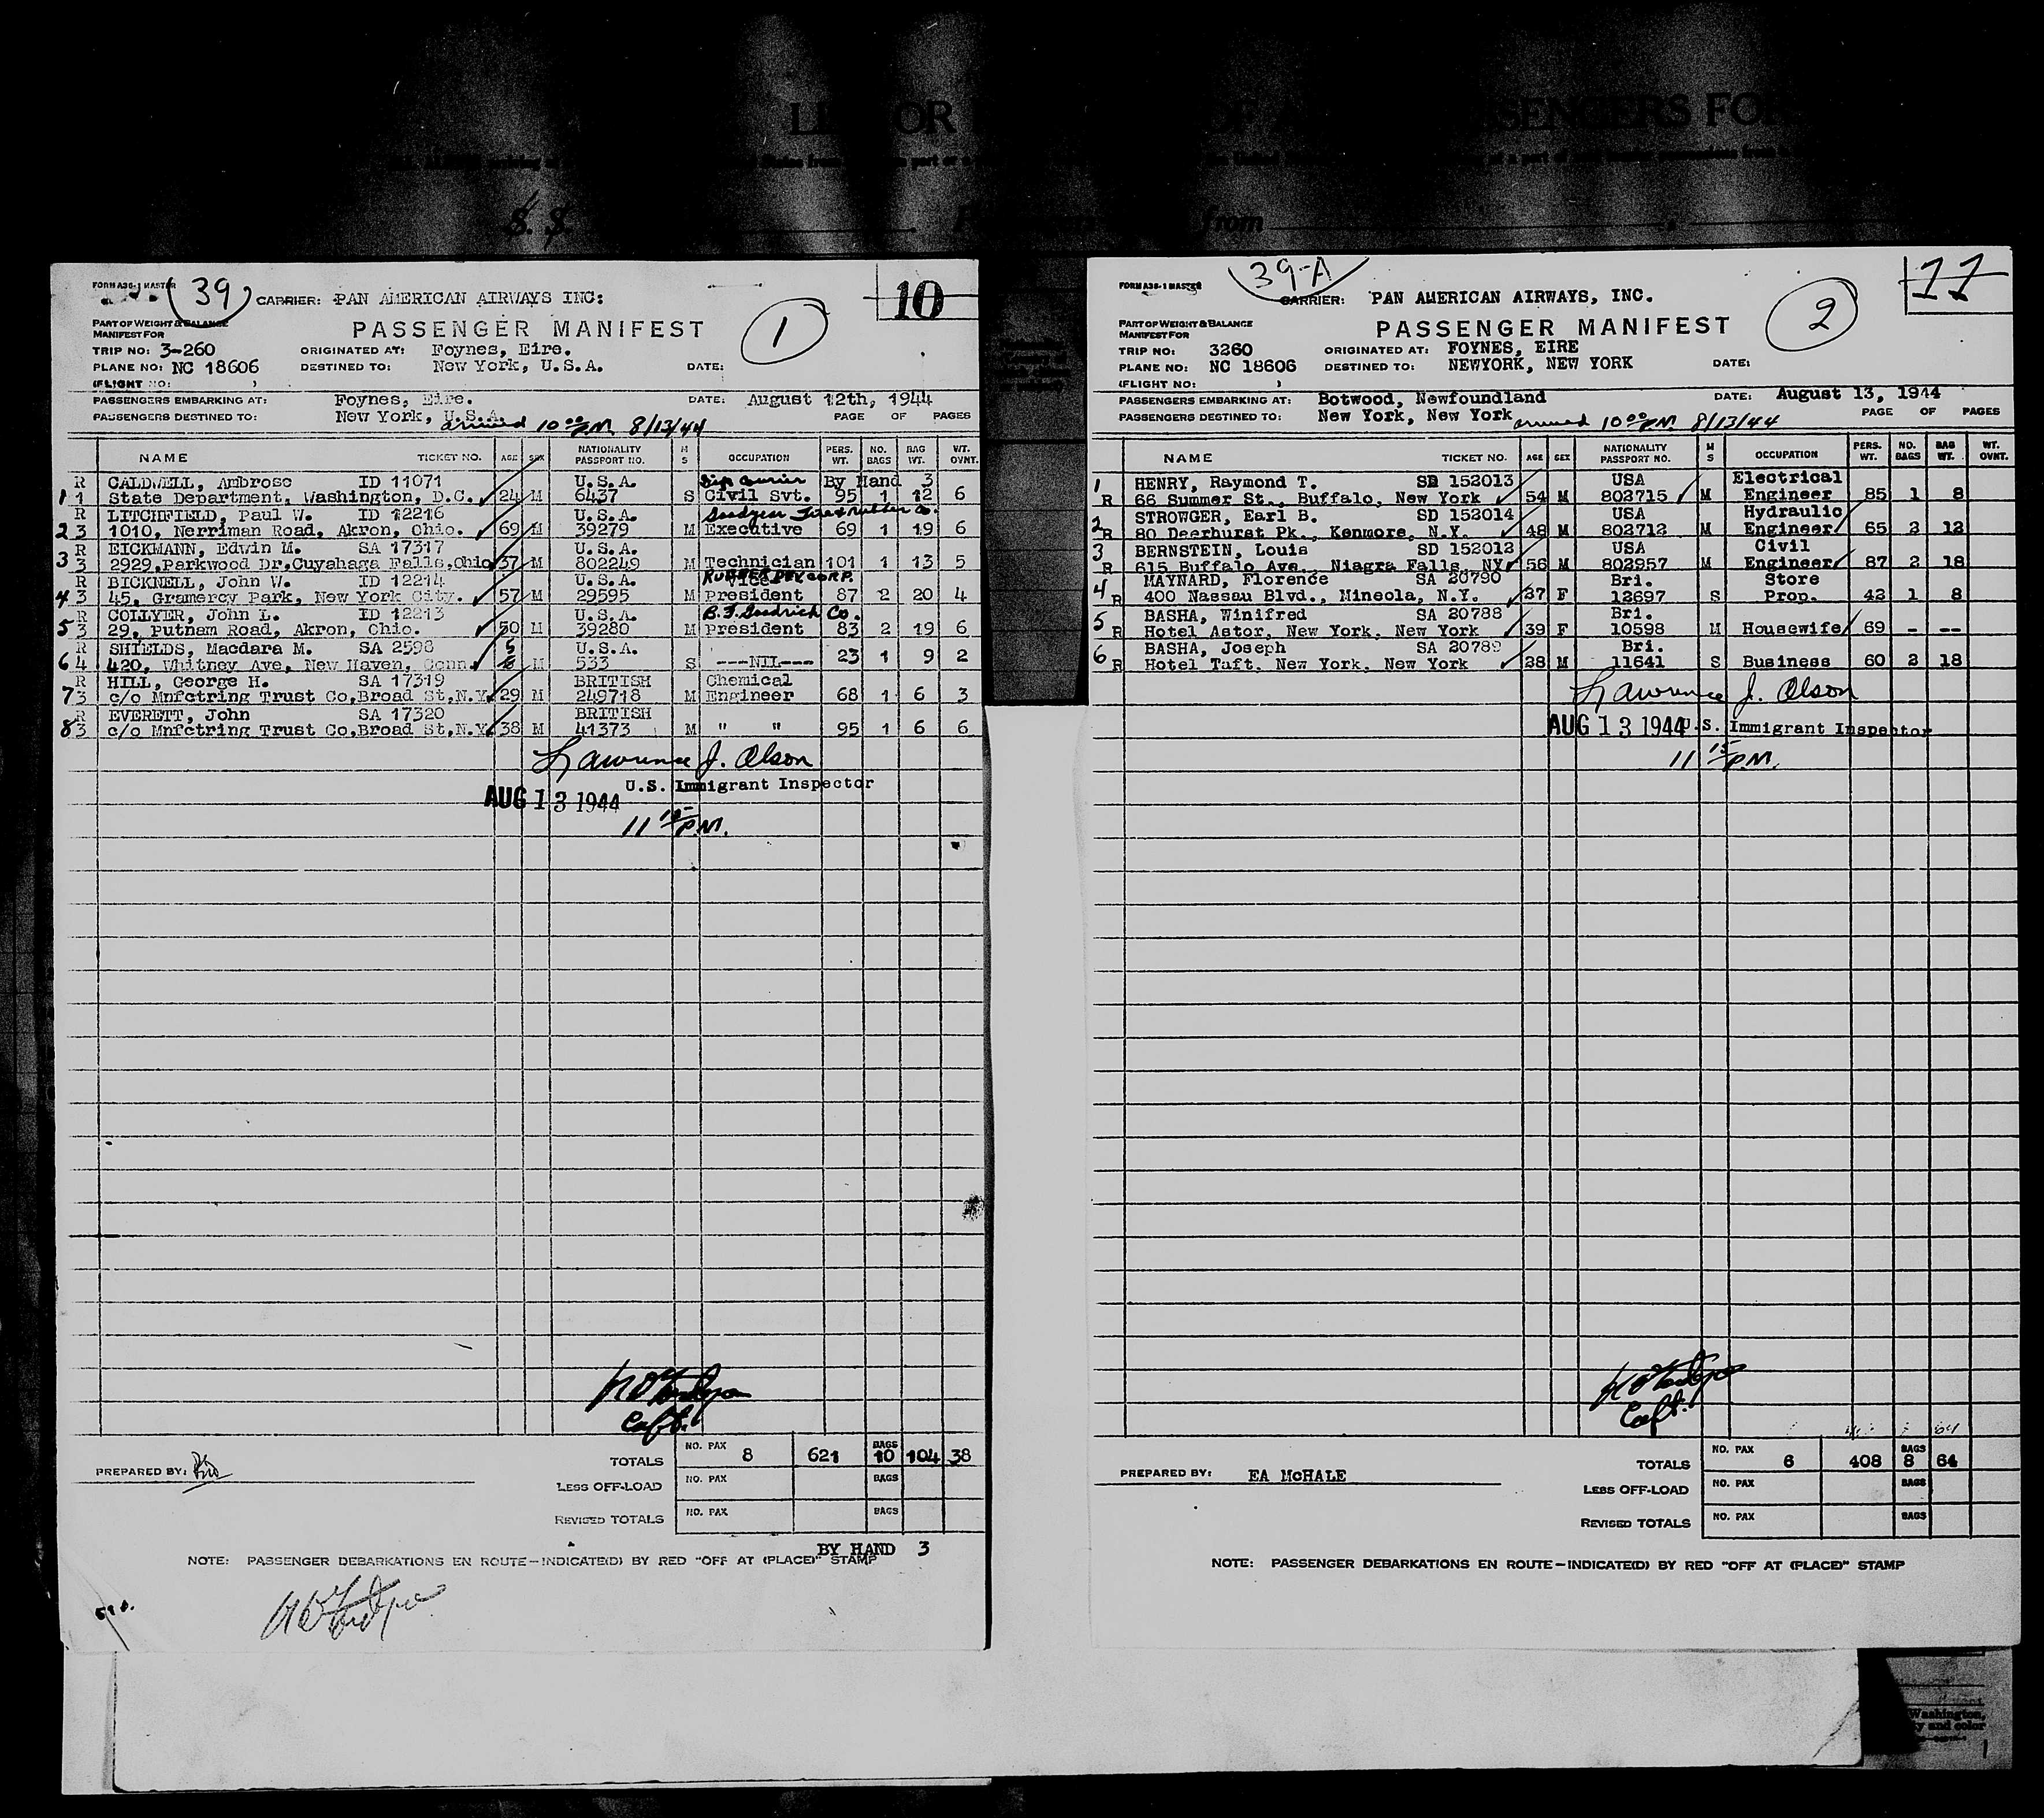 LI OR OF A SENGERS FOR
S. S. from
FORM A36-1 MASTER
39
CARRIER: PAN AMERICAN AIRWAYS INC:
10
PART OF WEIGHT & BALANCE
MANIFEST FOR
PASSENGER MANIFEST
1
TRIP NO: 3-260 ORIGINATED AT: Foynes, Eire.
PLANE NO: NC 18606 DESTINED TO: New York, U.S.A. DATE:
(FLIGHT NO: )
PASSENGERS EMBARKING AT: Foynes, Eire. DATE: August 12th, 1944
PASSENGERS DESTINED TO: New York, U.S.A. PAGE OF PAGES
arrived 10 00 P.M. 8/13/44
NAME TICKET NO. AGE SEX NATIONALITY PASSPORT NO. M S OCCUPATION PERS. WT. NO. BAGS BAG WT. WT. OVNT.
R CALDWELL, Ambrose ID 11071 U.S.A. Dip Courier By Hand 3
1 1 State Department, Washington, D.C. 24 M 6437 S Civil Svt. 95 1 12 6
R LITCHFIELD, Paul W. ID 12216 U.S.A. Goodyear Tire & Rubber Co.
2 3 1010, Nerriman Road, Akron, Ohio. 69 M 39279 M Executive 69 1 19 6
R EICKMANN, Edwin M. SA 17317 U.S.A.
3 3 2929,Parkwood Dr,Cuyahaga Falls,Ohio 37 M 802249 M Technician 101 1 13 5
R BICKNELL, John W. ID 12214 U.S.A. RUBBER DEV CORP. Vice
4 3 45, Gramercy Park, New York City. 57 M 29595 M President 87 2 20 4
R COLLYER, John L. ID 12213 U.S.A. B.F. Goodrich Co.
5 3 29, Putnam Road, Akron, Ohio. 50 M 39280 M President 83 2 19 6
R SHIELDS, Macdara M. SA 2598 5 U.S.A.
6 4 420, Whitney Ave, New Haven, Conn. M 533 S ---NIL--- 23 1 9 2
R HILL, George H. SA 17319 BRITISH Chemical
7 3 c/o Mnfctring Trust Co,Broad St,N.Y. 29 M 249718 M Engineer 68 1 6 3
R EVERETT, John SA 17320 BRITISH
8 3 c/o Mnfctring Trust Co,Broad St,N.Y. 38 M 41373 M " " 95 1 6 6
Lawrence J. Olson
U.S. Immigrant Inspector
AUG 13 1944
11 15 P.M.
Capt.
TOTALS NO. PAX 8 621 BAGS 10 104 38
PREPARED BY:
LESS OFF-LOAD NO. PAX BAGS
REVISED TOTALS NO. PAX BAGS
BY HAND 3
NOTE: PASSENGER DEBARKATIONS EN ROUTE—INDICATE(D) BY RED "OFF AT (PLACE)" STAMP
FORM A36-1 MASTER
39-A
CARRIER: PAN AMERICAN AIRWAYS, INC.
11
PART OF WEIGHT & BALANCE
MANIFEST FOR
PASSENGER MANIFEST
2
TRIP NO: 3260 ORIGINATED AT: FOYNES, EIRE
PLANE NO: NC 18606 DESTINED TO: NEWYORK, NEW YORK DATE:
(FLIGHT NO: )
PASSENGERS EMBARKING AT: Botwood, Newfoundland DATE: August 13, 1944
PASSENGERS DESTINED TO: New York, New York PAGE OF PAGES
arrived 10 00 P.M. 8/13/44
NAME TICKET NO. AGE SEX NATIONALITY PASSPORT NO. M S OCCUPATION PERS. WT. NO. BAGS BAG WT. WT. OVNT.
1 HENRY, Raymond T. SD 152013 USA Electrical
R 66 Summer St., Buffalo, New York 54 M 802715 M Engineer 85 1 8
2 STROWGER, Earl B. SD 152014 USA Hydraulic
R 80 Deerhurst Pk., Kenmore, N.Y. 48 M 802712 M Engineer 65 2 12
3 BERNSTEIN, Louis SD 152012 USA Civil
R 615 Buffalo Ave., Niagra Falls, NY 56 M 802957 M Engineer 87 2 18
4 MAYNARD, Florence SA 20790 Bri. Store
R 400 Nassau Blvd., Mineola, N.Y. 37 F 12697 S Prop. 42 1 8
5 BASHA, Winifred SA 20788 Bri.
R Hotel Astor, New York, New York 39 F 10598 M Housewife 69 - --
6 BASHA, Joseph SA 20789 Bri.
R Hotel Taft, New York, New York 28 M 11641 S Business 60 2 18
Lawrence J. Olson
AUG 13 1944 U.S. Immigrant Inspector
11 15 P.M.
Capt.
TOTALS NO. PAX 6 408 BAGS 8 64
PREPARED BY: EA McHALE
LESS OFF-LOAD NO. PAX BAGS
REVISED TOTALS NO. PAX BAGS
NOTE: PASSENGER DEBARKATIONS EN ROUTE—INDICATE(D) BY RED "OFF AT (PLACE)" STAMP
Washington,
y and color